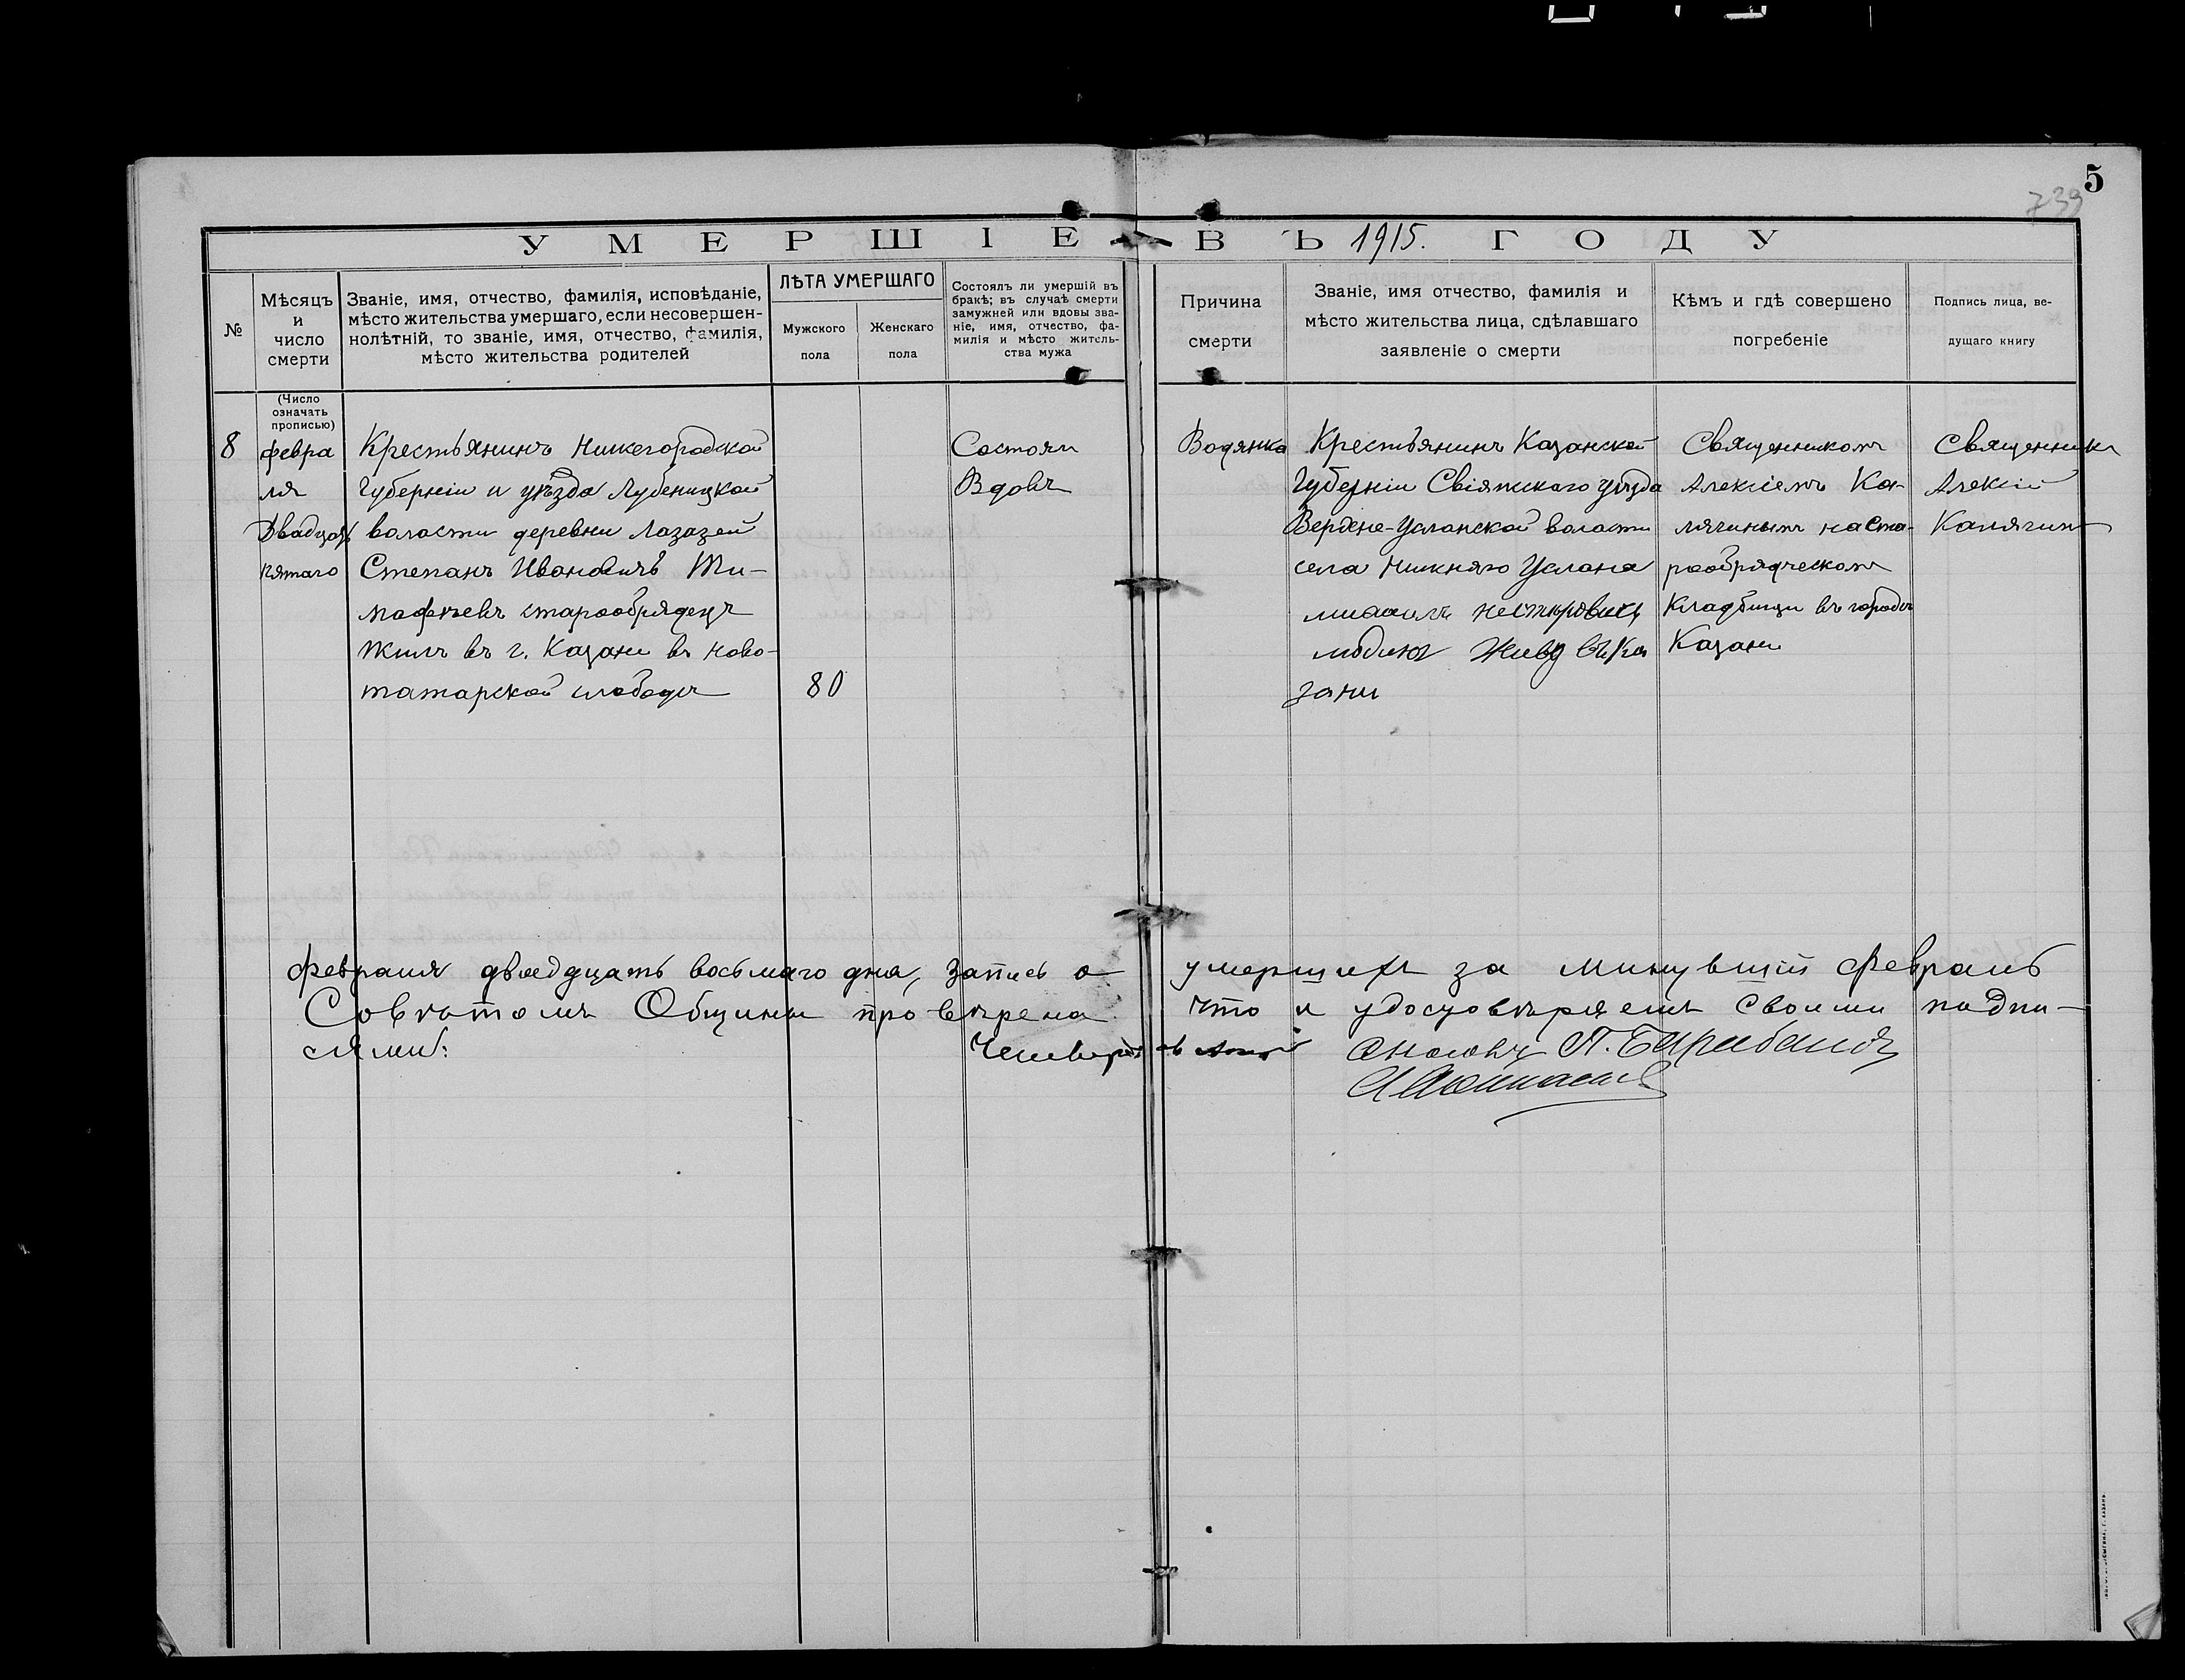 5
739
УМЕРШІЕ ВЪ 1915. ГОДУ
№
Мѣсяцъ
и
число
смерти
Званіе, имя, отчество, фамилія, исповѣданіе,
мѣсто жительства умершаго, если несовершен-
нолѣтній, то званіе, имя, отчество, фамилія,
мѣсто жительства родителей
ЛѢТА УМЕРШАГО
Мужского
пола
Женскаго
пола
Состоялъ ли умершій въ
бракѣ; въ случаѣ смерти
замужней или вдовы зва-
ніе, имя, отчество, фа-
милія и мѣсто житель-
ства мужа
Причина
смерти
Званіе, имя отчество, фамилія и
мѣсто жительства лица, сдѣлавшаго
заявленіе о смерти
Кѣмъ и гдѣ совершено
погребеніе
Подпись лица, ве-
дущаго книгу
(Число
означать
прописью)
8
февра
ля
Двадцать
пятаго
Крестьянинъ Нижегородской
Губерніи и уѣзда
волости деревни
Степанъ Ивановичъ Ти-
мофѣевъ старообрядецъ
жилъ въ г. Казани въ Ново-
татарской слободѣ
80
Состоял
Вдовъ
Водянка
Крестьянинъ Казанской
Губерніи Свіяжскаго уѣзда
Верхне-Услонской волости
села Нижняго Услона
зани
Священникомъ
Алексіемъ Ка-
лягинымъ на Ста-
рообрядческомъ
Кладбищи въ городѣ
Казани
Священникъ
Алексій
Калягинъ
Февраля двадцать восьмаго дня, запись о умершихъ за минувшій Февраль
Совѣтомъ Общины провѣрена что и удостовѣряемъ своими подпи-
сями: